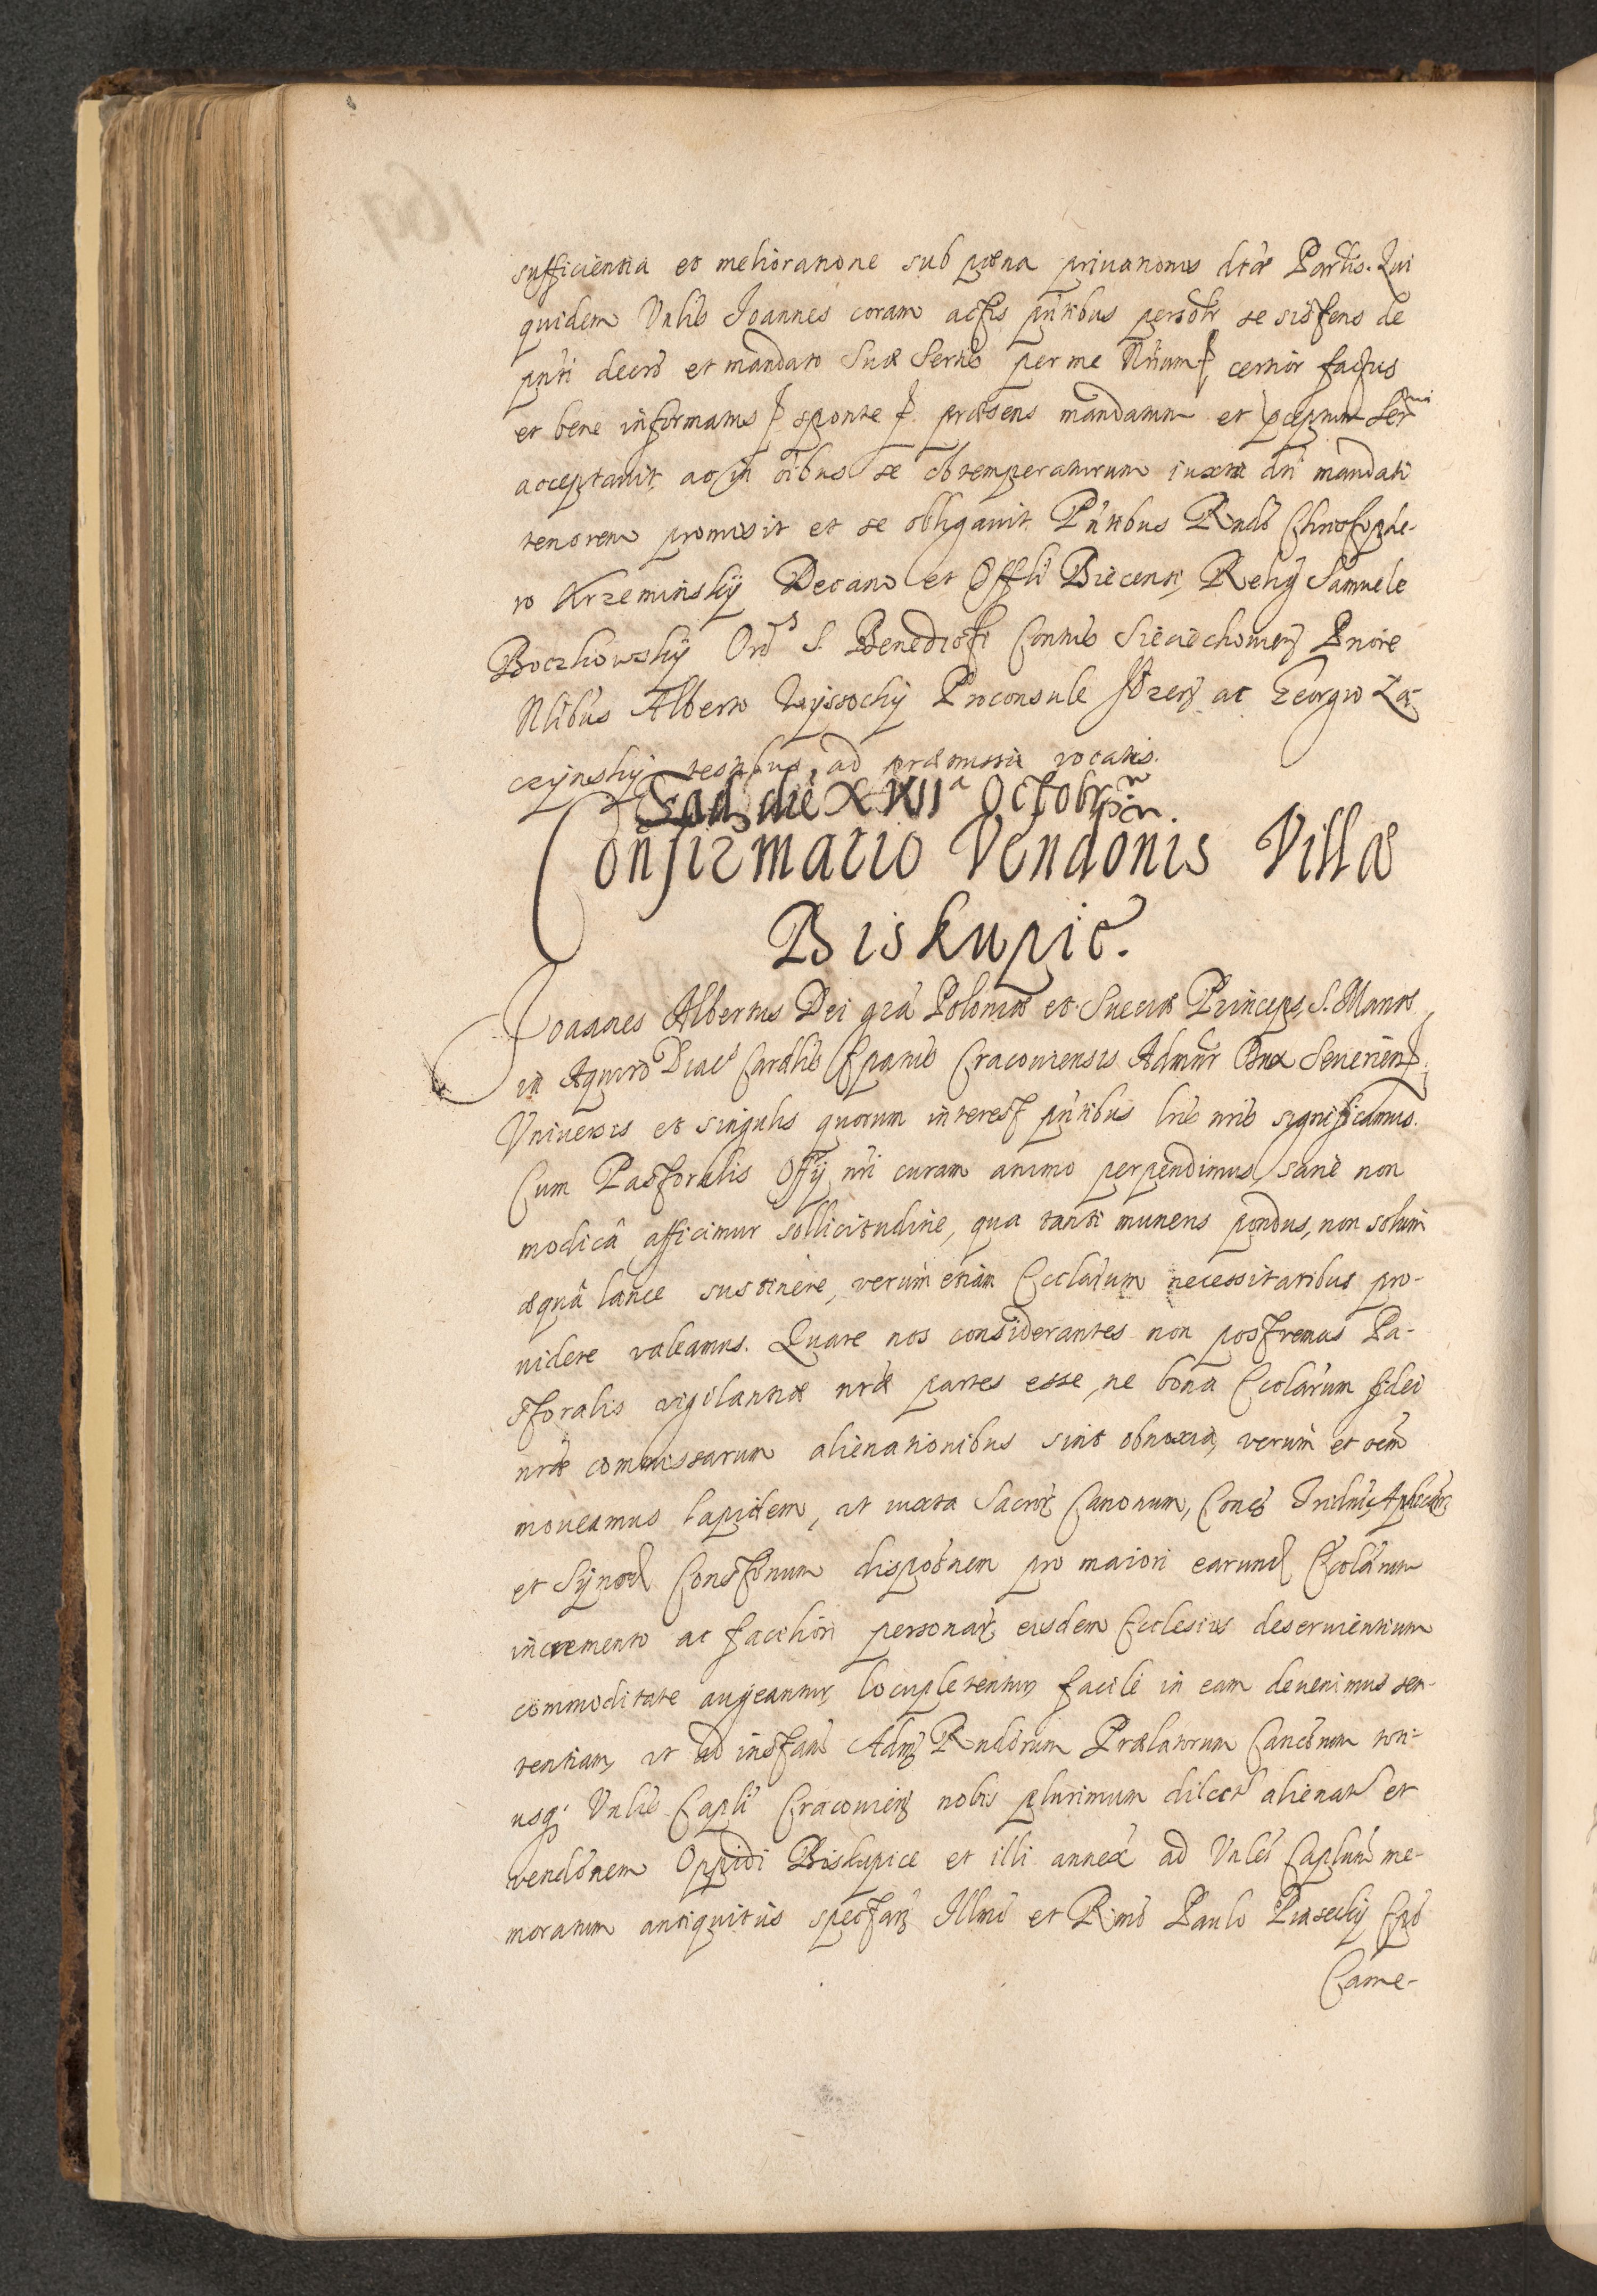 sufficientia et melioratione sub pœna priuationis dtæ Partis. Qui
quidem Vnlis Joannes coram actis pntibus persolr se sistens de
pnti decro et mandato Suæ Sertis per me Nrium certior factus
et bene informatus sponte præsens mandatum et pceptum Sermi
acceptauit, ac in oibus se obtemperaturum iuxta dti mandati
tenorem promisit et se obligauit. Pntibus Rndis Christophe-
ro Krzeminskÿ Decano et Offli Biecensi, Relig Samuele
Boczkowskÿ Ord S. Benedicti Contus Sieciechouien Priore
Nlibus Alberto Wyssockÿ Proconsule Ilzen ac Georgio Za-
czÿnskÿ testibus ad præmissa vocatis.
Ead die XXIIa Octobris.
Confirmatio Vendonis Villæ
Biskupic.
Joannes Albertus Dei gra Poloniæ et Sueciæ Princeps, S. Mariæ
in Aquiro Diac Cardlis Epatus Cracouiensis Admnr Dux Seuerien
Vniuersis et singulis quorum interest pntibus lris nris significamus.
Cum Pastoralis Offÿ nri curam animo perpendimus, sanè non
modicâ afficimur sollicitudine, qua tanti muneris pondus, non solum
æquâ lance sustinere, verum etiam Ecclarum necessitatibus pro-
uidere valeamus. Quare nos considerantes non postremas Pa-
storalis vigilantiæ nræ partes esse, ne bona Ecclarum fidei
nræ commissarum alienationibus sint obnoxia, verum et oem
moueamus lapidem, vt iuxta Sacror Canonum, Conc Tridni, Aplicar
et Synod Constonum dispositnem pro maiori earund Ecclarum
incremento ac faciliori personar eisdem Ecclesiis deseruientium
commoditate augeantur, locupletentur, facilè in eam deuenimus sen-
tentiam, vt ad instam Admg Rndorum Prælatorum Canconum toti-
usq; Vnlis Capli Cracouien nobis plurimum dilect alienat et
vendonem Oppidi Biskupice et illi annex ad Vnle Caplum me-
moratum antiquitùs spectan Illmo et Rmo Paulo Piaseckÿ Epo
Came-